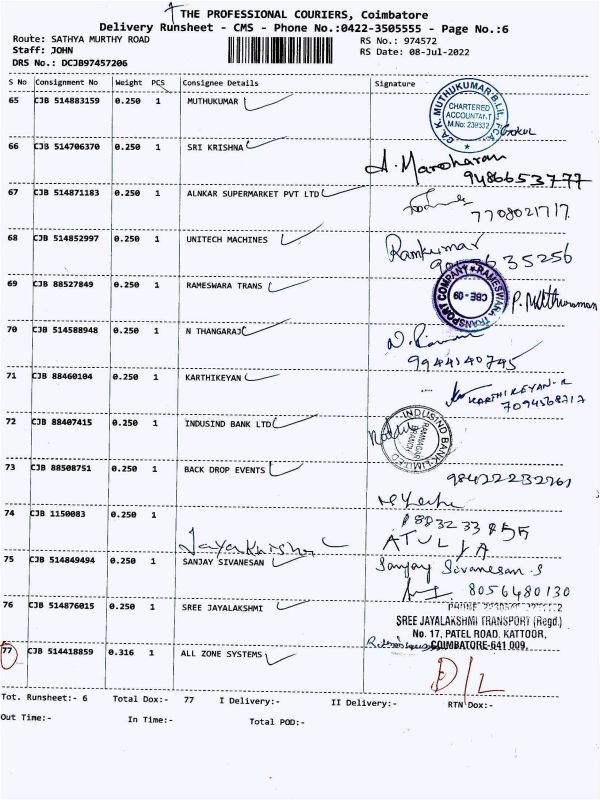 THE PROFESSIONAL COURIERS, Coimbatore
Delivery Runsheet - CMS - Phone No.:0422-3505555 - Page No.:6
Route: SATHYA MURTHY ROAD RS No.: 974572
Staff: JOHN RS Date: 08-Jul-2022
DRS No.: DCJB97457206
S No Consignment No Weight PCS Consignee Details Signature
65 CJB 514883159 0.250 1 MUTHUKUMAR
CA. K. MUTHUKUMAR B.Lit., FCA
CHARTERED
ACCOUNTANT
Gokul
66 CJB 514706370 0.250 1 SRI KRISHNA
A. Manoharan
9486653777
67 CJB 514871183 0.250 1 ALNKAR SUPERMARKET PVT LTD
7708021717
68 CJB 514852997 0.250 1 UNITECH MACHINES
Ramkumar
635256
69 CJB 88527849 0.250 1 RAMESWARA TRANS
RAMESWARA TRANSPORT COMPANY
CBE-09
70 CJB 514588948 0.250 1 N THANGARAJ
9944140745
71 CJB 88460104 0.250 1 KARTHIKEYAN
KARTHIKEYAN-R
7094568717
72 CJB 88407415 0.250 1 INDUSIND BANK LTD
INDUSIND BANK LIMITED
RAMNAGAR
BRANCH
73 CJB 88508751 0.250 1 BACK DROP EVENTS
74 CJB 1150083 0.250 1
Jayakrishna
ATULYA
75 CJB 514849494 0.250 1 SANJAY SIVANESAN
Sanjay Sivanesan.S
8056480130
76 CJB 514876015 0.250 1 SREE JAYALAKSHMI
SREE JAYALAKSHMI TRANSPORT (Regd.)
No. 17, PATEL ROAD, KATTOOR,
COIMBATORE-641 009.
77 CJB 514418859 0.316 1 ALL ZONE SYSTEMS
D/L
Tot. Runsheet:- 6 Total Dox:- 77 I Delivery:- II Delivery:- RTN Dox:-
Out Time:- In Time:- Total POD:-